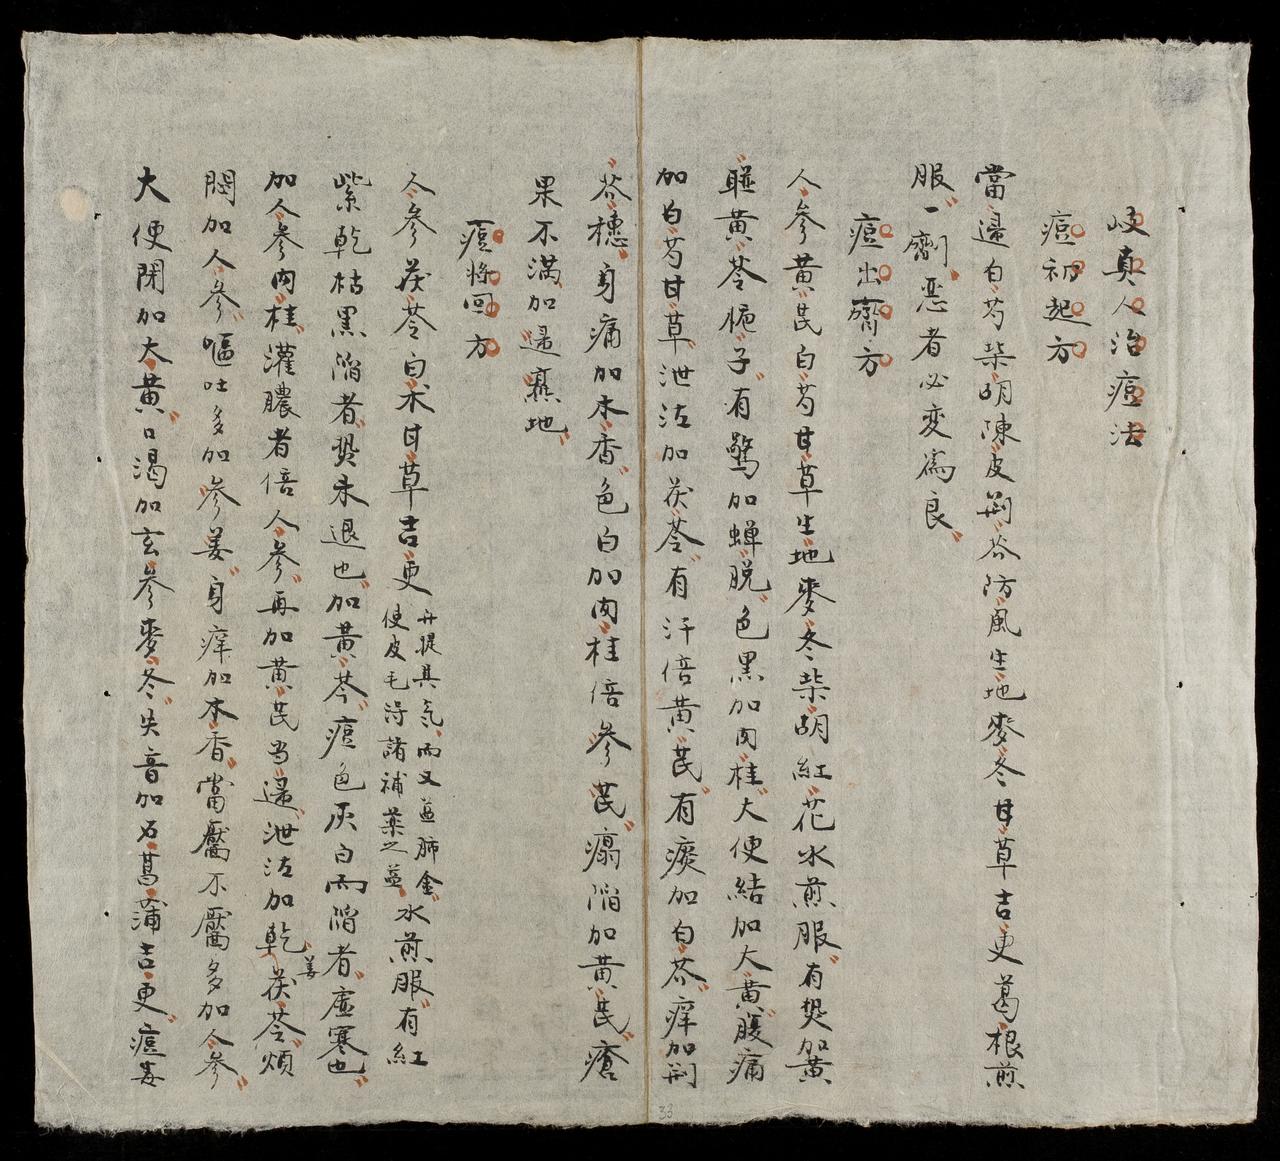 岐真人治痘法
痘初起方
當歸白芍柴胡陳皮荆芥防風生地麥冬甘草吉更葛根煎
服一劑惡者必变為良
痘出齊方
人參黃芪白芍甘草生地麥冬柴胡紅花水煎服有热加黃
連黃芩梔子有驚加蝉脱色黑加肉桂大便結加大黃腹痛
加白芍甘草泄泻加茯苓有汗倍黃芪有痰加白芥痒加荆
芥穗身痛加木香色白加肉桂倍參芪塌陷加黃芪瘡
果不满加歸熟地
痘將回方
人參茯苓白术甘草吉更升提其氣而又益肺金使皮毛得諸補藥之益水煎服有紅
紫乾枯黑陷者热未退也加黃芩痘色灰白而陷者虛寒也
加人參肉桂灌膿者倍人參再加黃芪当歸泄泻加乾姜茯苓煩
悶加人參嘔吐多加參姜身痒加木香當靨不靨多加人參
大便閉加大黃口渴加玄參麥冬失音加石菖蒲吉更痘毒
33